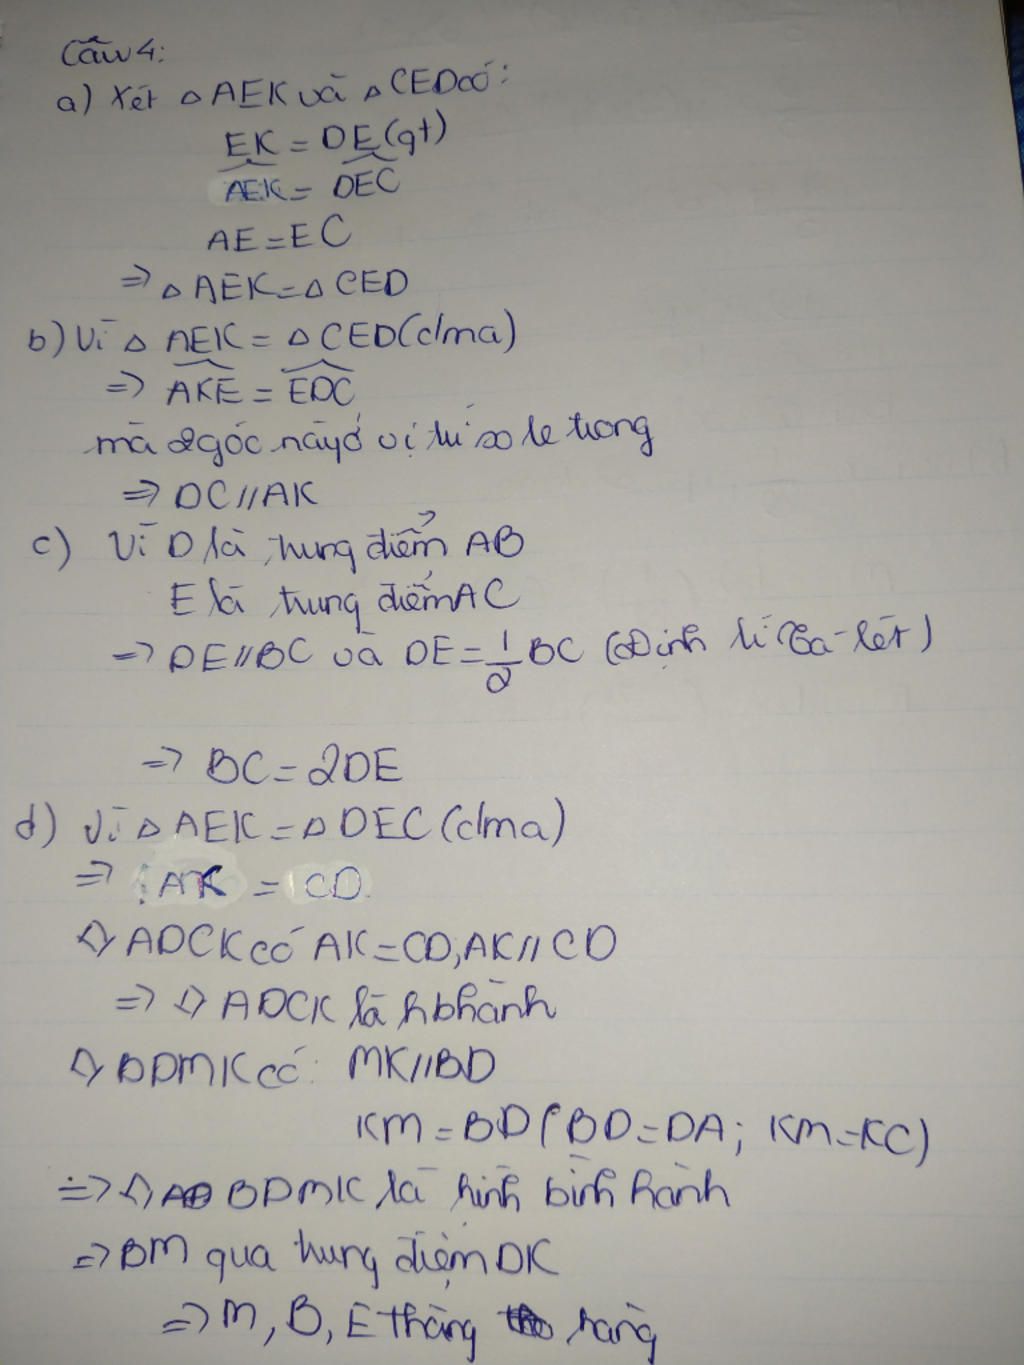 Câu 4:
a) Xét △ AEK và △ CED có:
EK = DE (gt)
AEK = DEC
AE = EC
=> △ AEK = △ CED
b) Vì △ AEK = △ CED (c/ma)
=> AKE = EDC
mà 2 góc này ở vị trí so le trong
=> DC // AK
c) Vì D là trung điểm AB
E là trung điểm AC
=> DE // BC và DE = 1/2 BC (Định lí Ta-lét)
=> BC = 2DE
d) Vì △ AEK = △ DEC (c/ma)
=> AK = CD
ADCK có AK = CD, AK // CD
=> ADCK là hbhành
BDMK có: MK // BD
KM = BD (BD = DA; KM = KC)
=> BDMK là hình bình hành
=> BM qua trung điểm DK
=> M, B, E thẳng hàng